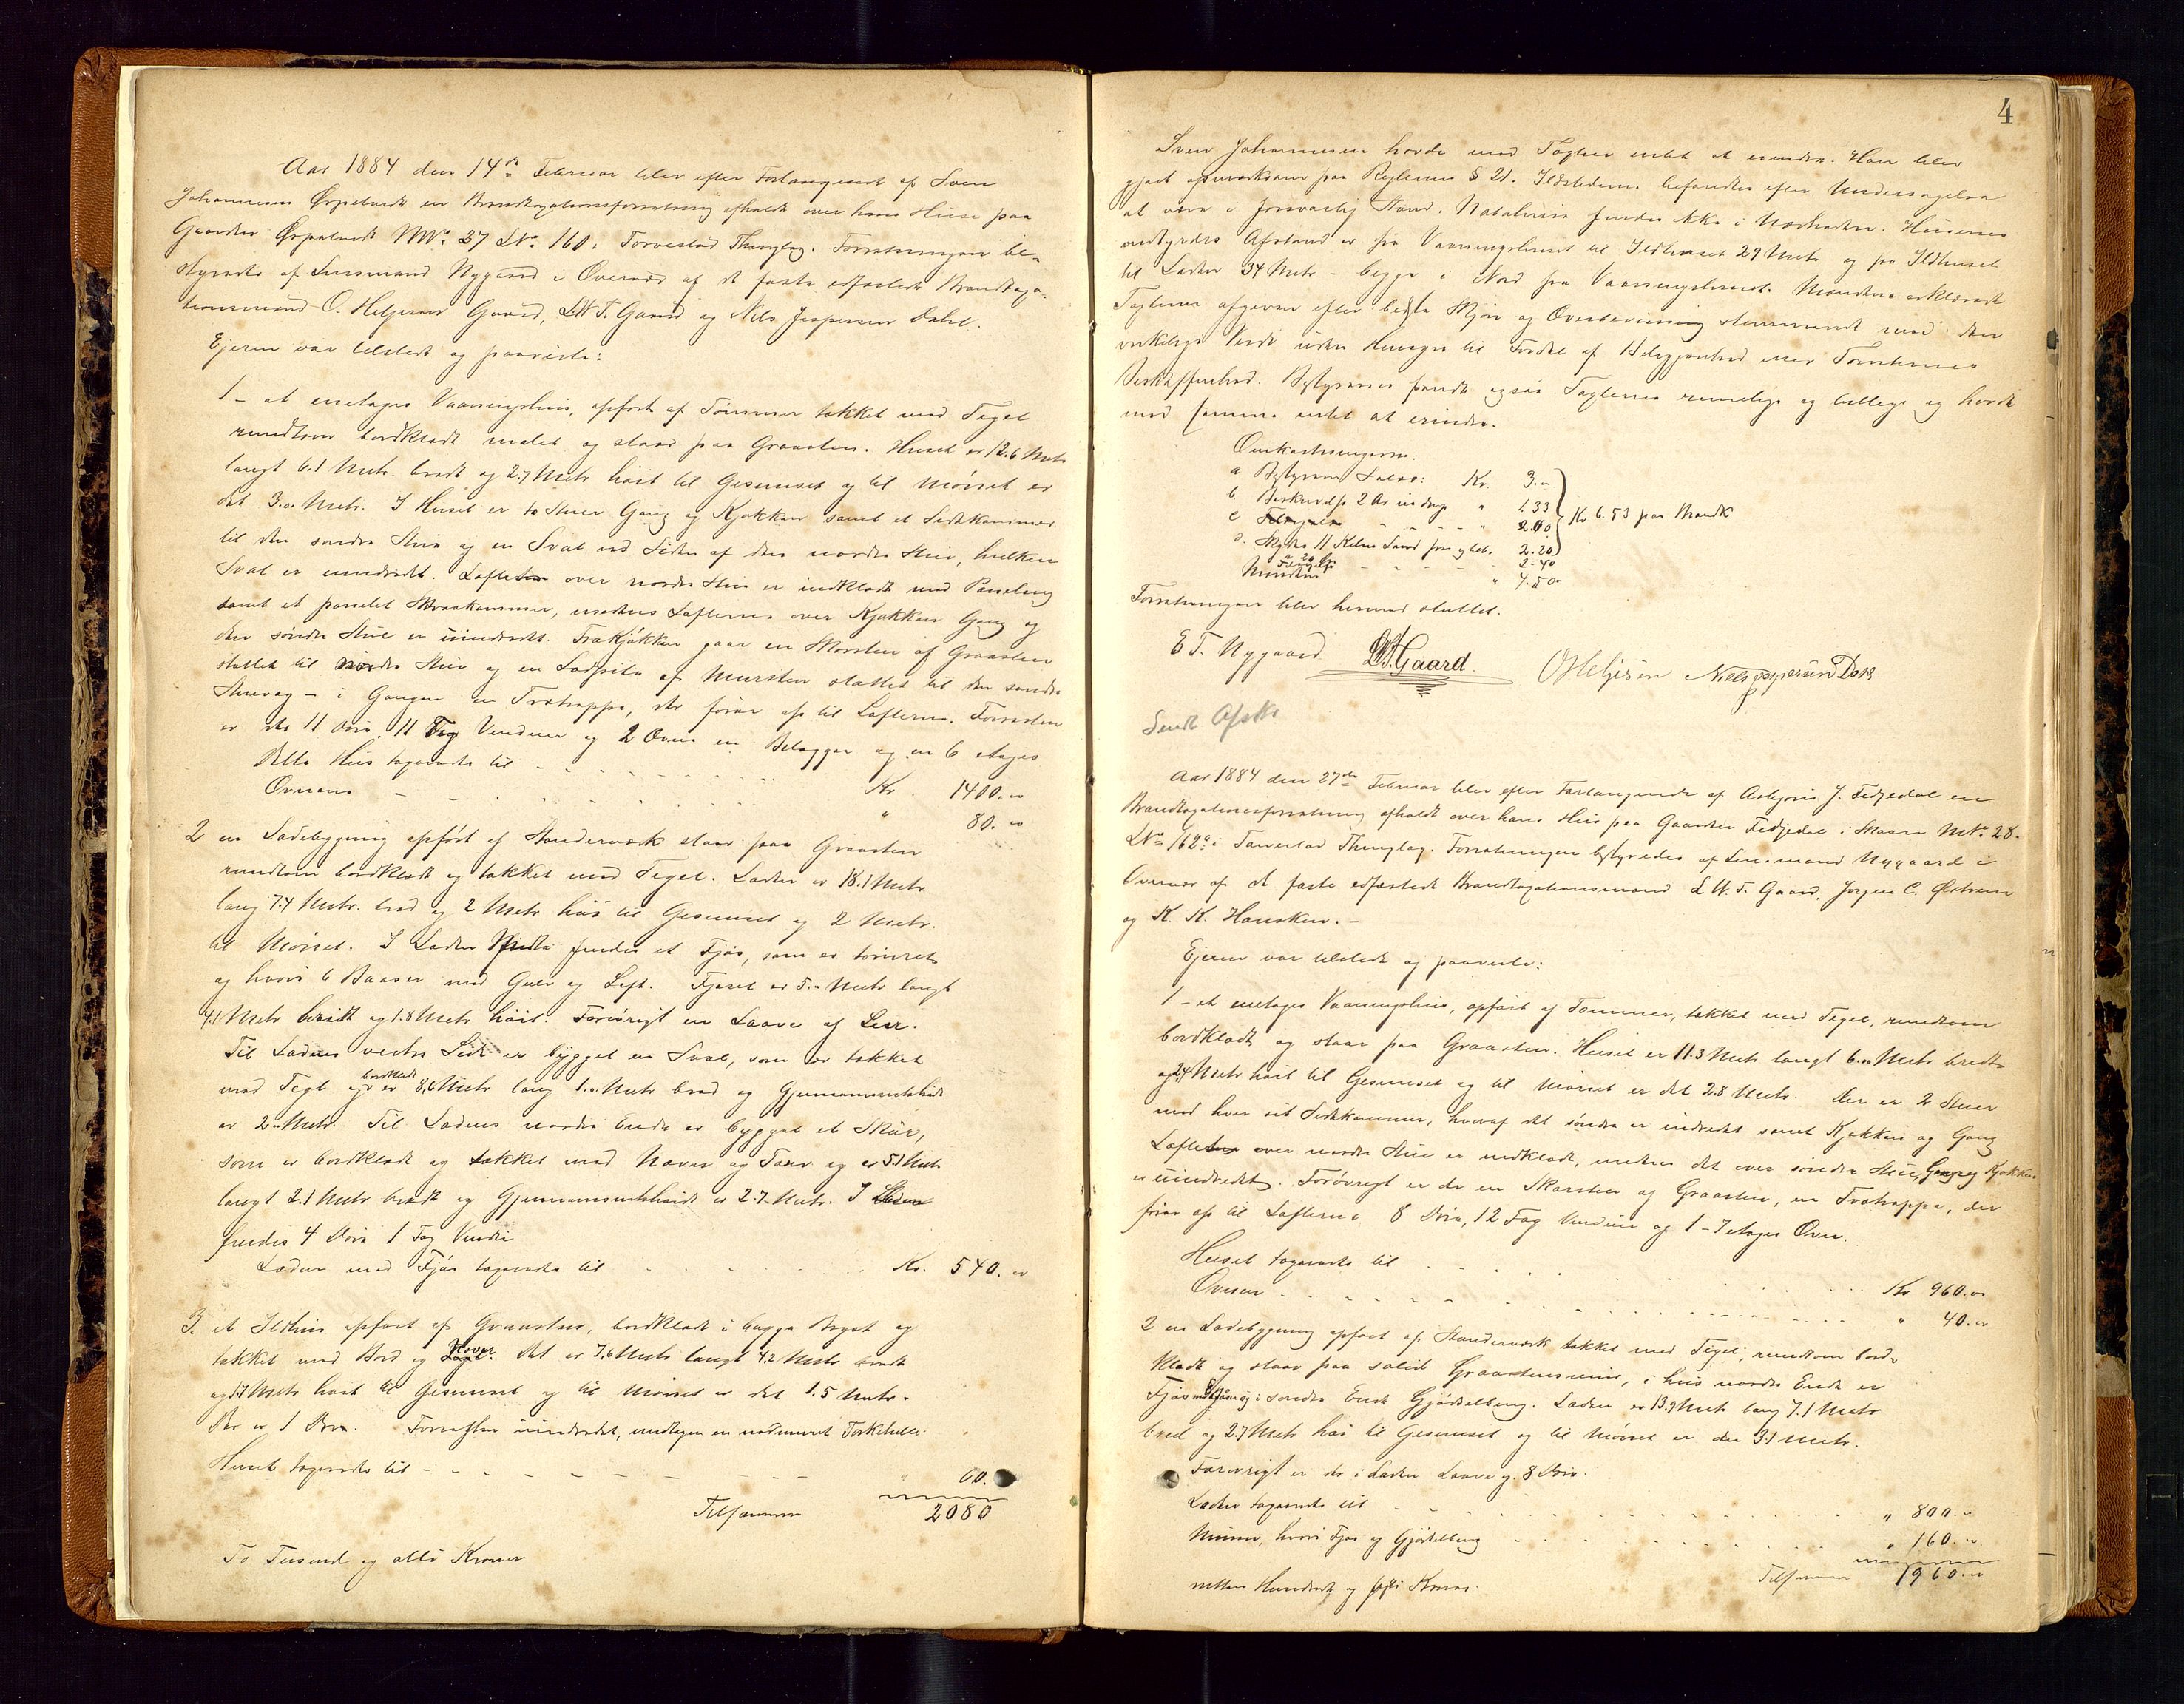 Aar 1884 den 14de Februar blev efter Forlangende af Sven
Johannesen Ørpetvedt en Brandtaxationsforretning afholdt over hans Huse paa
Gaarden Ørpetvedt MNo. 27 LNo. 160, Torvestad Thinglag. Forretningen be-
styredes af Lensmand Nygaard i Overvær af de faste edfæstede Brandtaxa-
tionsmænd O. Helgesen Gaard, L.W.T. Gaard og Nils Jespersen Dahl.
Ejeren var tilstede og paaviste:
1 - et enetages Vaaningshus, opført af Tømmer tækket med Tegel
rundtom bordklædt malet og staar paa Graasten. Huset er 12.6 Metr
langt 6.1 Metr. bredt og 2.7 Metr høit til Gesimset og til Mønet er
det 3.0 Metr. I Huset er to Stuer Gang og Kjøkken samt et Sidekammer
til den søndre Stue og en Sval ved Siden af den nordre Stue, hvilken
Sval er uindredt. Loftet over nordre Stue er indklædt med Paneling
samt et panelet Skraakammer, medens Lofterne over Kjøkken Gang og
den søndre Stue er uindredt. Fra Kjøkken gaar en Skorsten af Graasten
støttet til nordre Stue og en Lodpibe af Mursten støttet til den søndre
Stuevæg - i Gangen en Trætrappe, der fører op til Lofterne. Foruden
er der 11 Døre, 11 Fag Vinduer og 2 Ovne en Bilægger og en 6 etages
Dette Hus taxeredes til - - - - Kr. 1400.00
Ovnene - - - - " 80.00
2 en Ladebygning opført af Stenderværk staar paa Graasten
rundtom bordklædt og tækket med Tegel. Laden er 18.1 Metr
lang 7.4 Metr. bred og 2 Metr høi til Gesimset og 2 Metr.
til Mønet. I Laden Midte findes et Fjøs, som er tømret
og hvori 6 Baaser med Gulv og Loft. Fjøset er 5.0 Metr langt
4.1 Metr bredt og 1.8 Metr høit. Forøvrigt en Laave af Leer.
Til Ladens vestre Side er bygget en Sval, som er tækket
med Tegl og bordklædt er 8,6 Metr lang 1.0 Metr bred og Gjennemsnitshøide
er 2.0 Metr. Til Ladens nordre Ende er bygget et Skur,
som er bordklædt og tækket med Næver og Torv og er 5.1 Metr
langt 2.1 Metr bredt og Gjennemsnitshøide er 2.7 Metr. I Laden
findes 4 Døre 1 Fag Vindu
Laden med Fjøs taxeredes til - - - - Kr. 540.00
3. et Ildhus opført af Graasten, bordklædt i begge Bryst og
tækket med Bord og Næver. Det er 7.6 Metr langt 4.2 Metr bredt
og 1.7 Metr høit til Gesimset og til Mønet er det 1.5 Metr.
Der er 1 Dør. Foroven uindredet, undtagen en nedmuret Tørkehelle.
Huset taxeredes til - - - - " 60.
Tilsammen 2080
To Tusend og otti Kroner
4
Sven Johannesen havde mod Taxten intet at erindre. Han blev
gjort opmærksom paa Reglernes § 21. Ildstederne befandtes efter Undersøgelse
at være i forsvarlig Stand. Naboehuse findes ikke i Nærheden. Husenes
indbyrdes Afstand er fra Vaaningshuset til Ildhuset 29 Metr og fra Ildhuset
til Laden 34 Metr - begge i Nord fra Vaaningshuset. Mændene erklærede
Taxterne afgivne efter bedste Skjøn og Overbevisning stemmende med den
virkelige Værdi uden Hensyn til Fordel af Beliggenhed eller Tomternes
Beskaffenhed. Bestyreren fandt ogsaa Taxterne rimelige og billige og havde
mod samme intet at erindre.
Omkostningerne:
a Bestyrerens Salær: Kr. 3.00
b. Beskrivelse 2 Ark " 1.33
c " 2.00
d. Skyds 11 Kilm Land frem og tilb. 2.20
Kr 6.53 paa Brandk
2.40
Mændene " 4.50
Forretningen blev hermed sluttet.
E T. Nygaard L.W.T. Gaard. O Helgesen Niels Jespersen Dahl
Sendt Afskr
Aar 1884 den 27de Februar blev efter Forlangende af Asbjørn J. Fedjedal en
Brandtaxationsforretning afholdt over hans Hus paa Gaarden Fedjedal i Skaare MNo. 28.
LNo. 162a i Torvestad Thinglag. Forretningen bestyredes af Lensmand Nygaard i
Overvær af de faste edfæstede Brandtaxationsmænd L.W.T. Gaard, Jørgen C. Østrem
og K. K. Hausken. -
Ejeren var tilstede og paaviste:
1 - et enetages Vaaningshus, opført af Tømmer, tækket med Tegel, rundtom
bordklædt og staar paa Graasten. Huset er 11.3 Metr langt 6.0 Metr bredt
og 2.4 Metr høit til Gesimset og til Mønet er det 2.8 Metr. Der er 2 Stuer
med hver sit Sidekammer, hvoraf det søndre er indredet samt Kjøkken og Gang
Loftet over nordre Stue er indklædt, medens det over søndre Stue, Gang og Kjøkken
er uindredt. Forøvrigt er der en Skorsten af Graasten, en Trætrappe, der
fører op til Lofterne 8 Døre, 12 Fag Vinduer og 1 - 7 etages Ovn.
Huset taxeredes til - - - - Kr 960.00
Ovnen - - - - " 40.00
2 en Ladebygning opført af Stenderværk tækket med Tegel, rundtom bord-
klædt og staar paa solid Graastensmur, i hvis nordre Ende er
Fjøs og i søndre Ende Gjødselbing. Laden er 13.9 Metr lang 7.1 Metr
bred og 2.7 Metr høi til Gesimset og til Mønet er den 3.1 Metr.
Forøvrigt er der i Laden Laave og 8 Døre.
Laden taxeredes til - - - - " 800.00
Muren, hvori Fjøs og Gjødselbing - - - - " 160.00
nitten Hundrede og sexti Kroner. Tilsammen 1960.00